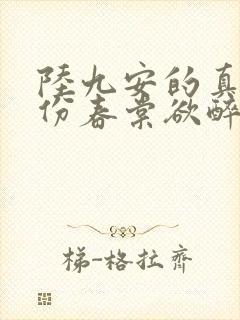 陸九安的真
份春棠欲醉
梯-格拉齊